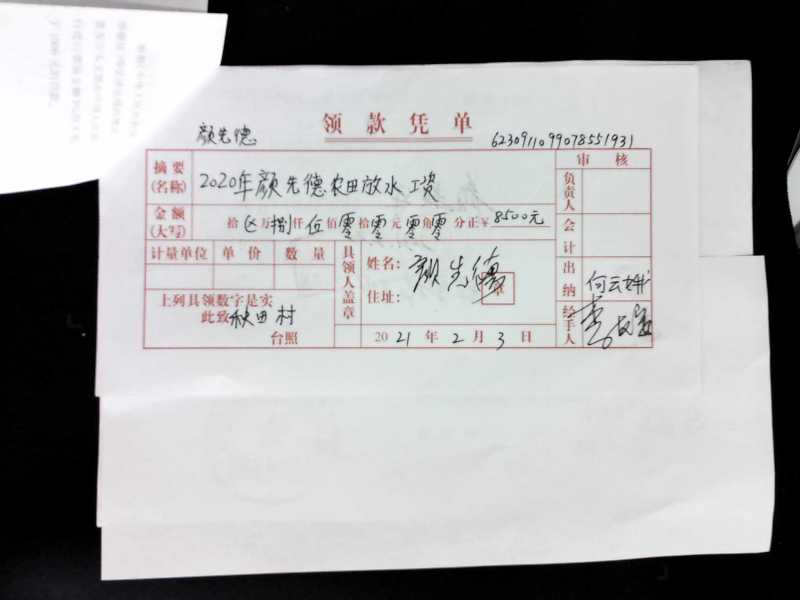 领款凭单
颜先德 6230911099078551931
摘要(名称) 2020年颜先德农田放水工资 审核
金额(大写) 拾 区 万 捌 仟 伍 佰 零 拾 零 元 零 角 零 分正¥ 8500元 负责人
计量单位 单价 数量 具领人盖章 姓名: 颜先德 会计
住址: 出纳 何云娥
上列具领数字是实
此致 秋田村
台照 2021年2月3日 经手人